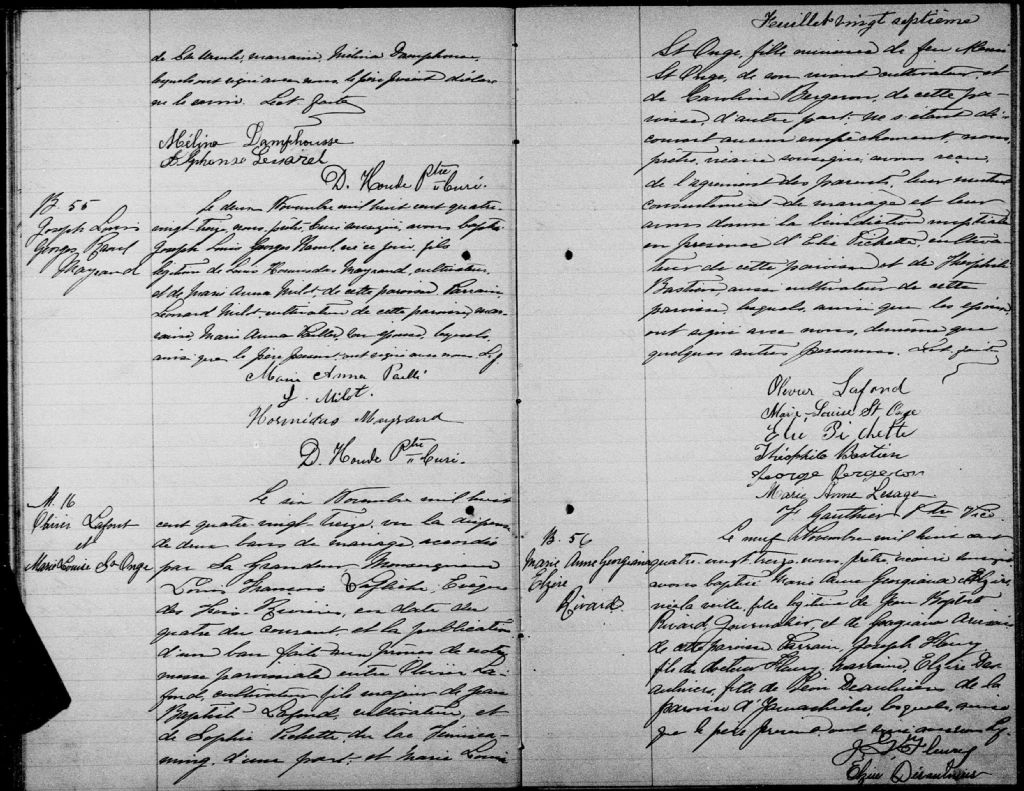 de Ste Ursule, marraine, Mélina Damphousse,
lesquels ont signé avec nous le père présent déclare
ne le savoir. Lect. faite
Mélina Damphousse
Alphonse Lessard
D. Houde Ptre Curé.
B. 55
Joseph Louis
Georges
Mayrand
Le deux Novembre mil huit cent quatre-
vingt-treize nous, prêtre, Curé soussigné, avons baptisé
Joseph Louis Georges né ce jour, fils
légitime de Louis Hormidas Mayrand, cultivateur,
et de Marie Anna Milot, de cette paroisse Parrain,
Léonard Milot, cultivateur de cette paroisse, mar-
raine, Marie Anna Paillé, son épouse, lesquels,
ainsi que le père présent, ont signé avec nous.
Marie Anna Paillé
L. Milot.
Hormidas Mayrand
D. Houde Ptre Curé.
M. 16
Olivier Lafont
et
Marie Louise St Onge
Le six Novembre mil huit
cent quatre vingt-treize, vu la dispense
de deux bans de mariage, accordée
par Sa Grandeur, Monseigneur
Louis François Laflèche, Evêque
des Trois-Rivières, en date du
quatre du courant, et la publication
d'un ban faite au prône de notre
messe paroissiale entre Olivier La-
fond, cultivateur, fils majeur de Jean
Baptiste Lafond, cultivateur, et
de Sophie Pichette, du lac Témisca-
ming, d'une part, et Marie Louise
Feuillet vingt septième
St Onge, fille mineure de feu
St Onge, de son vivant cultivateur, et
de Caroline Bergeron, de cette pa-
roisse, d'autre part; ne s'étant dé-
couvert aucun empêchement, nous,
prêtre, vicaire soussigné, avons reçu,
de l'agrément des parents, leur mutuel
consentement de mariage et leur
avons donné la bénédiction nuptiale
en présence d'Elie Pichette, cultiva-
teur de cette paroisse et de Théophile
Bastien, aussi cultivateur de cette
paroisse, lesquels, ainsi que les époux
ont signé avec nous, de même que
quelques autres personnes. Lect. faite
Olivier Lafond
Marie-Louise St Onge
Elie Pichette
Théophile Bastien
George Bergeron
Marie Anne Lesage
J. Gauthier Ptre Vic.
B. 56
Marie Anne Georgiana
Elzire
Rivard.
Le neuf Novembre mil huit cent
quatre-vingt-treize, nous, prêtre, vicaire soussigné
avons baptisé Marie Anne Georgiana Elzire,
née la veille, fille légitime de Jean Baptiste
Rivard Journalier, et de Georgiana
de cette paroisse Parrain, Joseph Fleury
fils de docteur Fleury, marraine, Elzire Des-
aulniers, fille de Désaulniers de la
paroisse d'Yamachiche, lesquels, ainsi
que le père présent ont signé avec nous
Fleury
Elzire Désaulniers